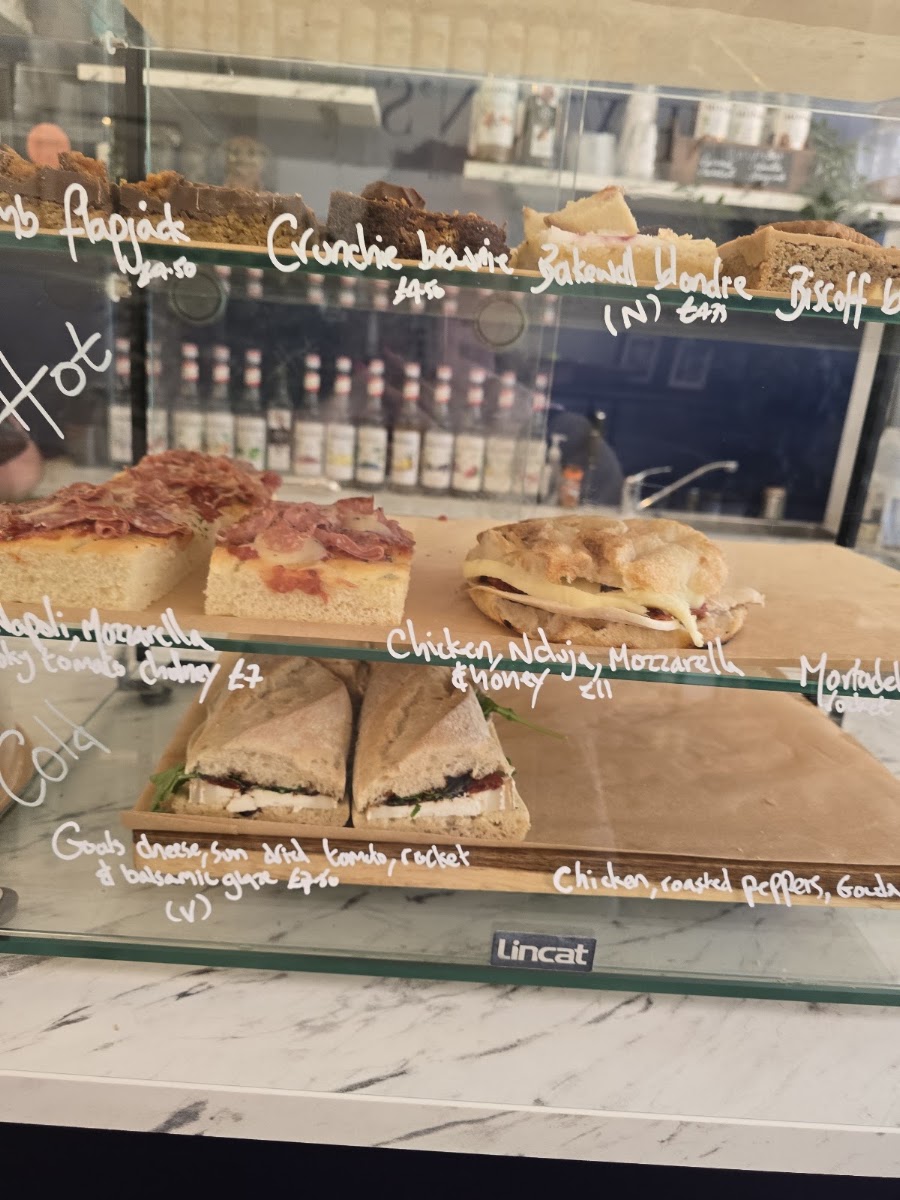 mb flapjack
£4.50
Crunchie brownie
£4.50
Bakewell blondie
(N) £4.75
Biscoff b
Hot
Napoli, Mozzarella
ky tomato chutney £7
Chicken, Nduja, Mozzarella
& honey £11
Mortadel
rocket
Cold
Goats cheese, sun dried tomato, rocket
& balsamic glaze £7.50
(V)
Chicken, roasted peppers, Gouda
Lincat